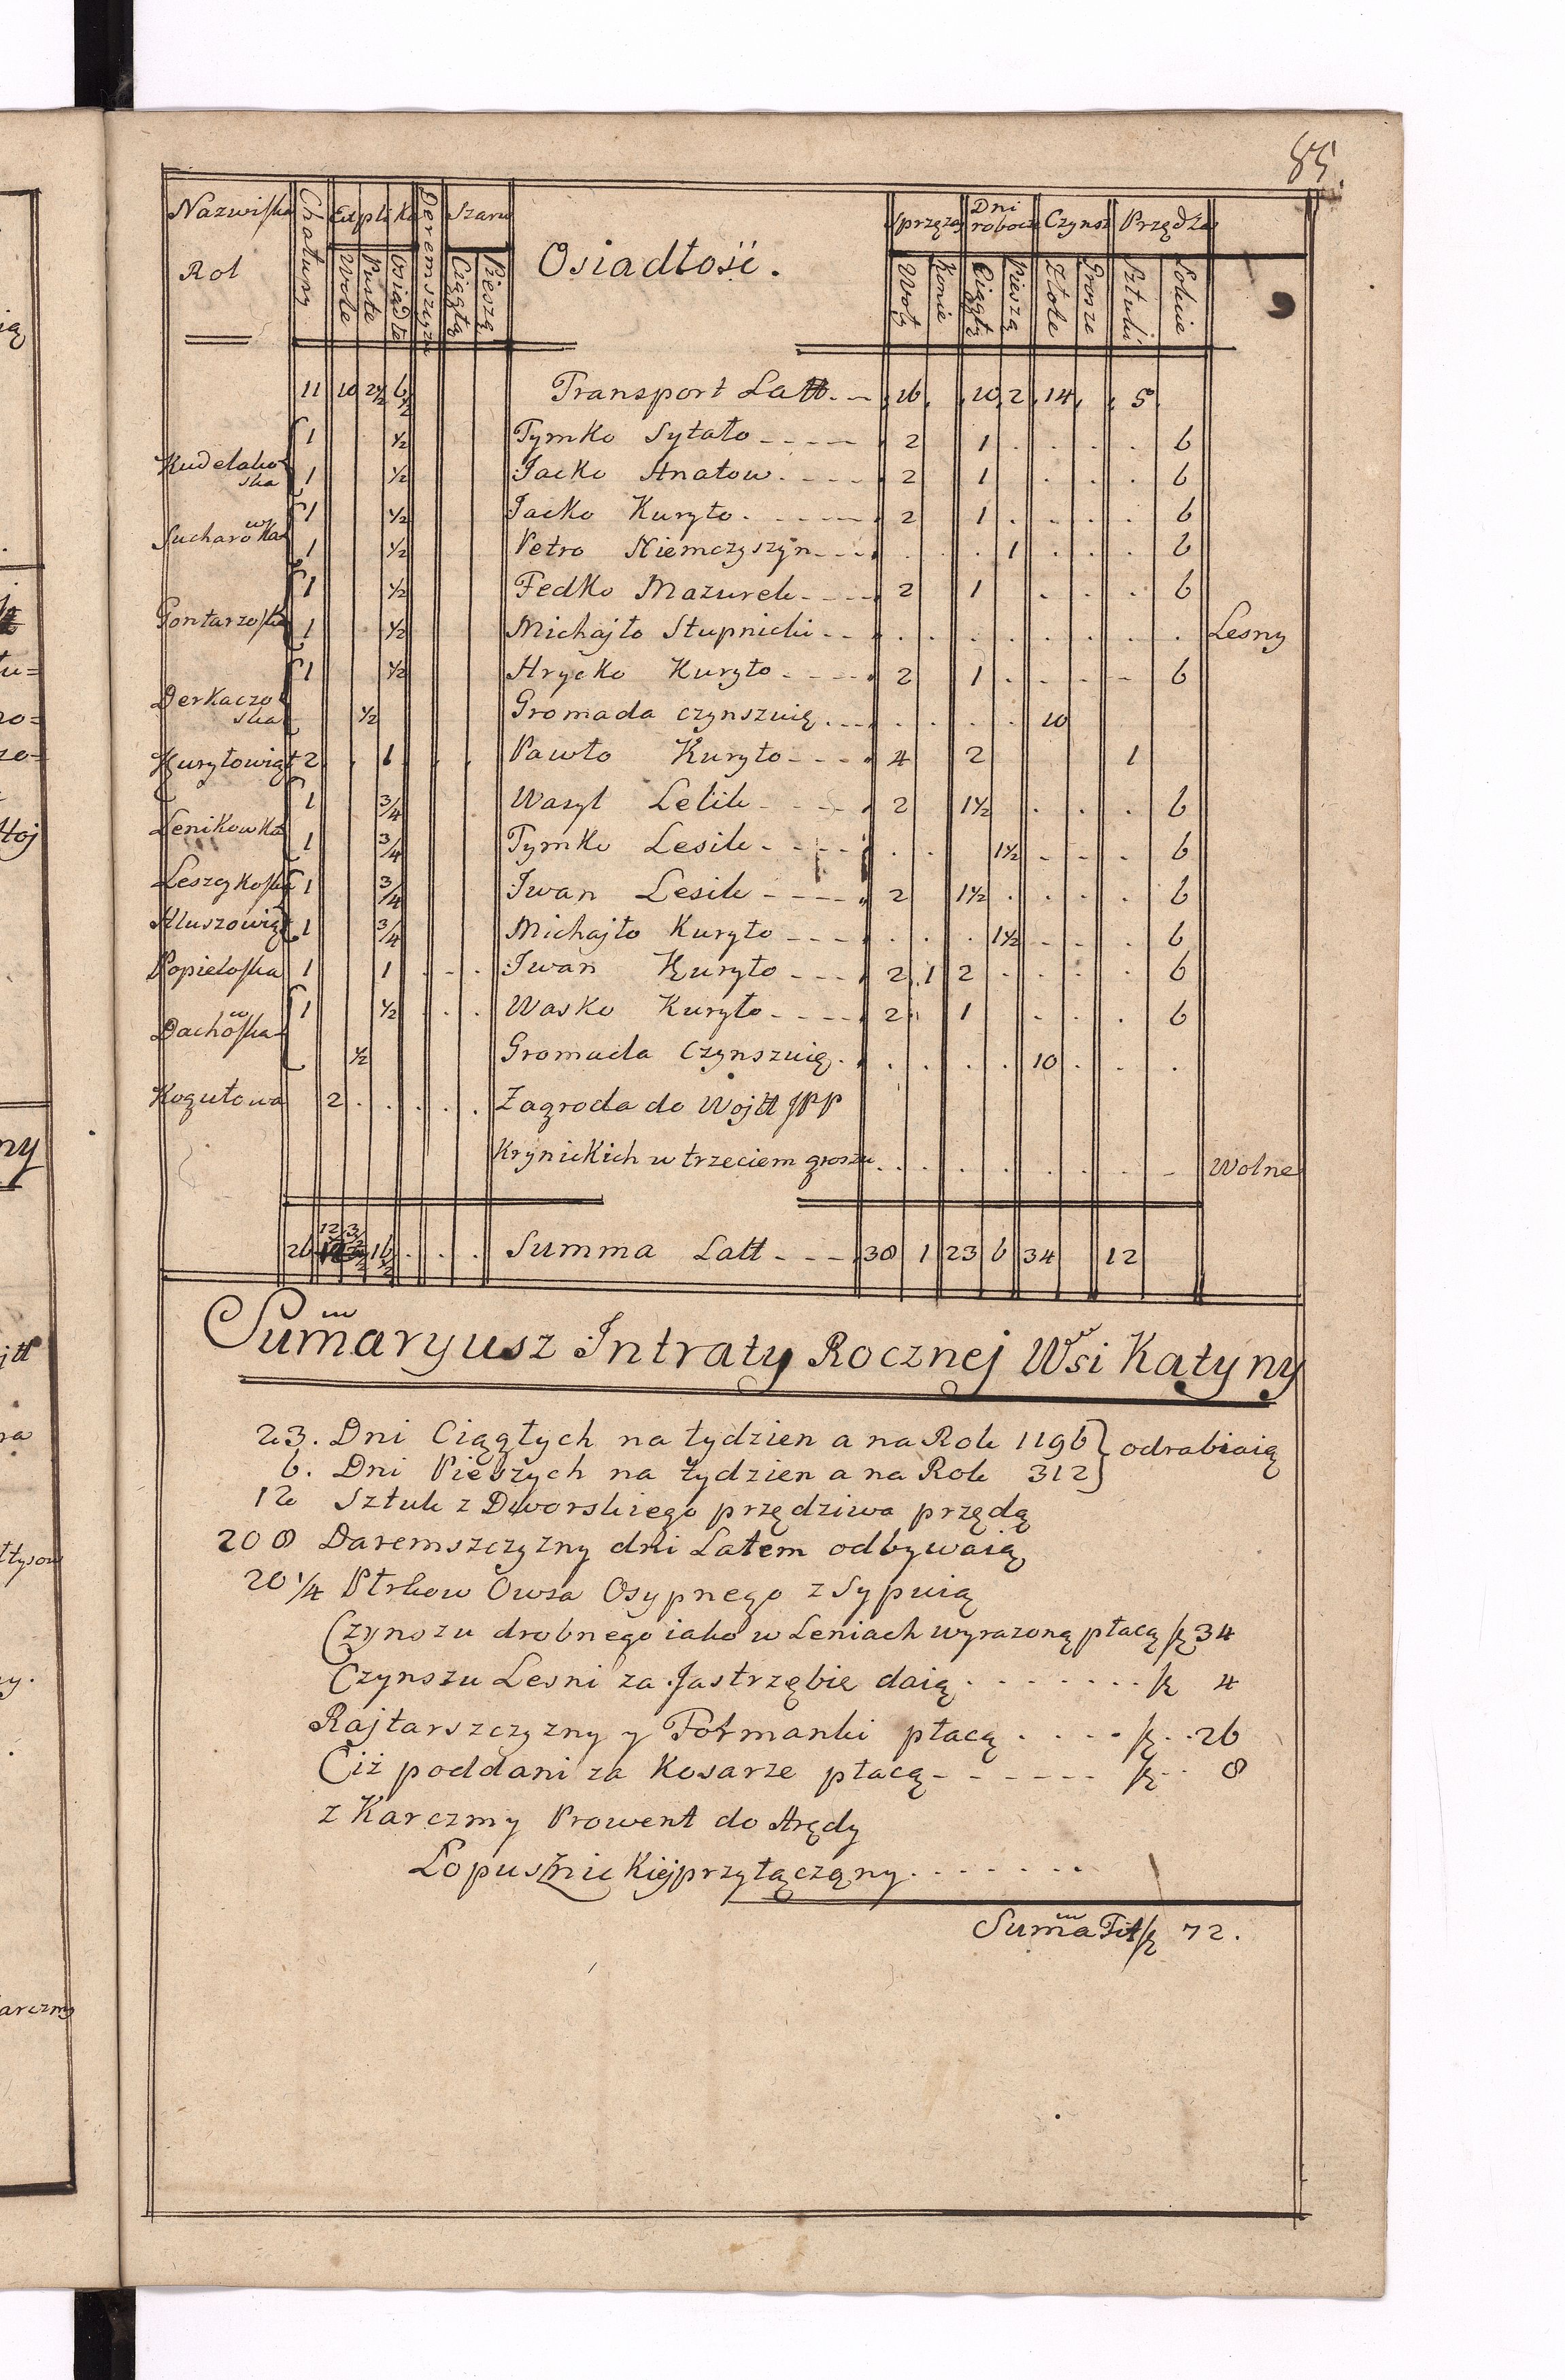 85.
Nazwiska Rol | Chałupy | Explika | Deremszczyzna | Szarw | Osiadłość. | Sprzężay | Dni robocze | Czynsz | Przędza
Wole | Puste | Osiadłe | Ciągłą | Pieszą | Woły | Konie | Ciągłą | Pieszą | Złote | Grosze | Sztuki | Łokcie
11 | 10 | 2½ | 6½ | Transport Latt. | 16 | 10 | 2 | 14 | 5
Kudelako ska | 1 | ½ | Tymko Sytało | 2 | 1 | 6
1 | ½ | Jacko Hnatow | 2 | 1 | 6
Sucharowka | 1 | ½ | Jacko Kuryło | 2 | 1 | 6
1 | ½ | Petro Niemczyszyn | 1 | 6
Gontarzoska | 1 | ½ | Fedko Mazurek | 2 | 1 | 6
1 | ½ | Michajło Stupnicki | Lesny
Derkaczo ska | 1 | ½ | Hrycko Kuryło | 2 | 1 | 6
½ | Gromada czynszuią | 10
Kuryłowiąt | 2 | 1 | Pawło Kuryło | 4 | 2 | 1
Lenikowka | 1 | ¾ | Wasyl Lelik | 2 | 1½ | 6
1 | ¾ | Tymko Lesik | 1½ | 6
Leszczykoska | 1 | ¾ | Iwan Lesik | 2 | 1½ | 6
Kluszowiąt | 1 | ¾ | Michajło Kuryło | 1½ | 6
Popieloska | 1 | 1 | Iwan Kuryło | 2 | 1 | 2 | 6
Dachowska | 1 | ½ | Wasko Kuryło | 2 | 1 | 6
½ | Gromada Czynszuią | 10
Kogutowa | 2 | Zagroda do Wojtt JPP
Krynickich w trzeciem groszu | Wolne
26 | 12 | 3½ | 16½ | Summa Latt | 38 | 1 | 23 | 6 | 34 | 12
Sum̃aryusz Intraty Rocznej Wsi Kątyny
23. Dni Ciągłych na tydzien a na Rok 1196 } odrabiaią
6. Dni Pieszych na tydzien a na Rok 312
12 Sztuk z Dworskiego przędziwa przędą
208 Daremszczyzny dni Latem odbywaią
20¼ Ptrkow Owsa Osypnego zsypuią
Czynszu drobnego iako w Leniach wyrazoną płacą fl 34
Czynszu Lesni za Jastrzębie daią . . . . . . . fl 4
Rajtarszczyzny y Formanki płacą . . . . fl . . 26
Ciż poddani za Kosarze płacą - - - - - - fl . . 8
z Karczmy Prowent do Arędy
Łopusznickiej przyłączony. . . . . . .
Sum̃a Fit fl 72.